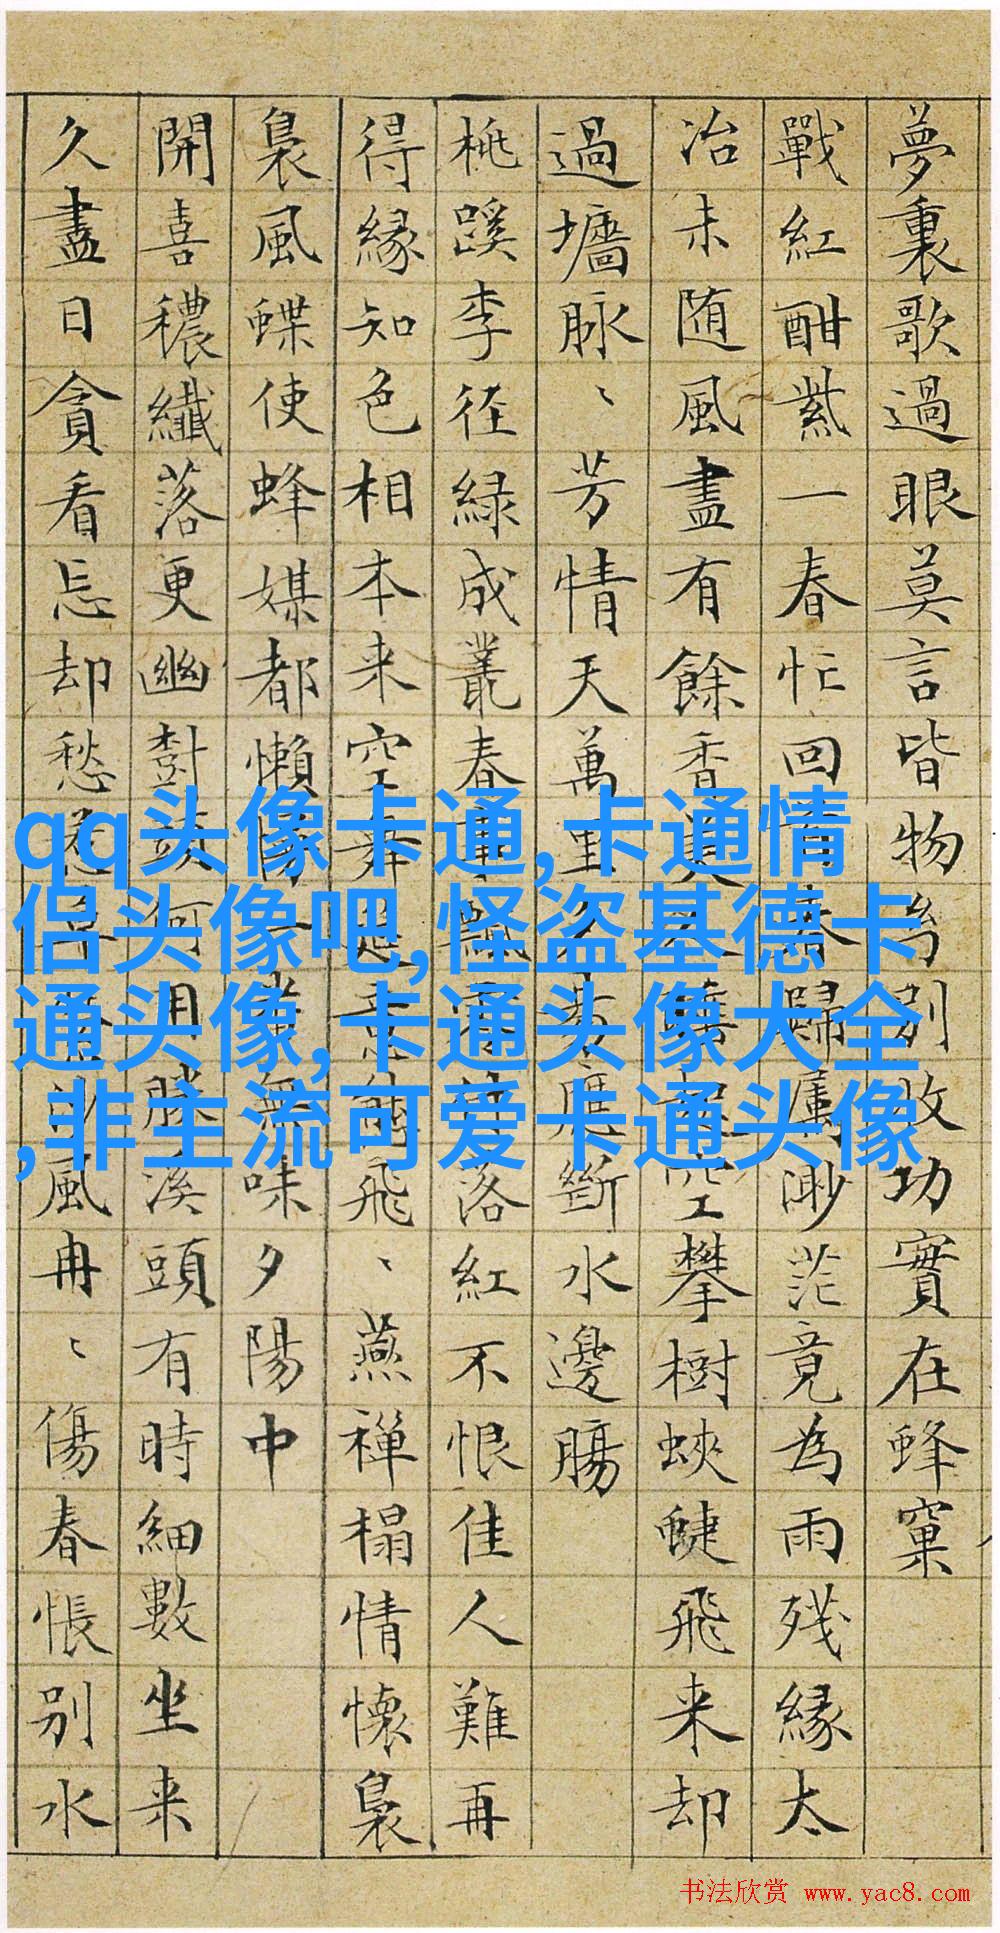 夢裏歌過眼莫言皆物給別收功實在蜂窠
戰紅酣紫一春忙回首春歸屬渺茫竟為雨殘緣太
冶未随風盡有餘香美空攀樹蛺蜨飛来却
過墻
脉、芳情天萬里斷水邊腸
桃蹊李径緑成叢春事飄零落紅不恨佳人難再
得緣知色相本来空舞意飛、燕禅榻情懷裊
裊風蝶使蜂媒都懶無味夕陽中
開喜穠纖落更幽對何用勝溪頭有時細數坐来
久盡日貪看忘却愁風冉、傷春悵別水
qq头像卡通,卡通情
侣头像吧,怪盗基德卡
通头像,卡通头像大全
,非主流可爱卡通头像
书法欣赏 www.yac8.com